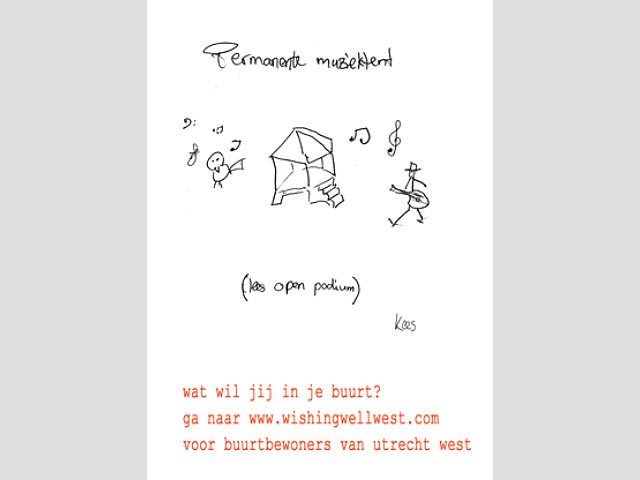 Permanente muziektent
(lees open podium)
Kees
wat wil jij in je buurt?
ga naar www.wishingwellwest.com
voor buurtbewoners van utrecht west